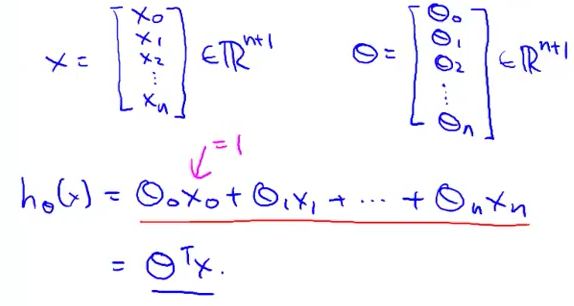 x = [x₀ x₁ x₂ ⋮ xₙ] ∈ ℝⁿ⁺¹ θ = [θ₀ θ₁ θ₂ ⋮ θₙ] ∈ ℝⁿ⁺¹
= 1
h_θ(x) = θ₀x₀ + θ₁x₁ + ⋯ + θₙxₙ
= θᵀx.